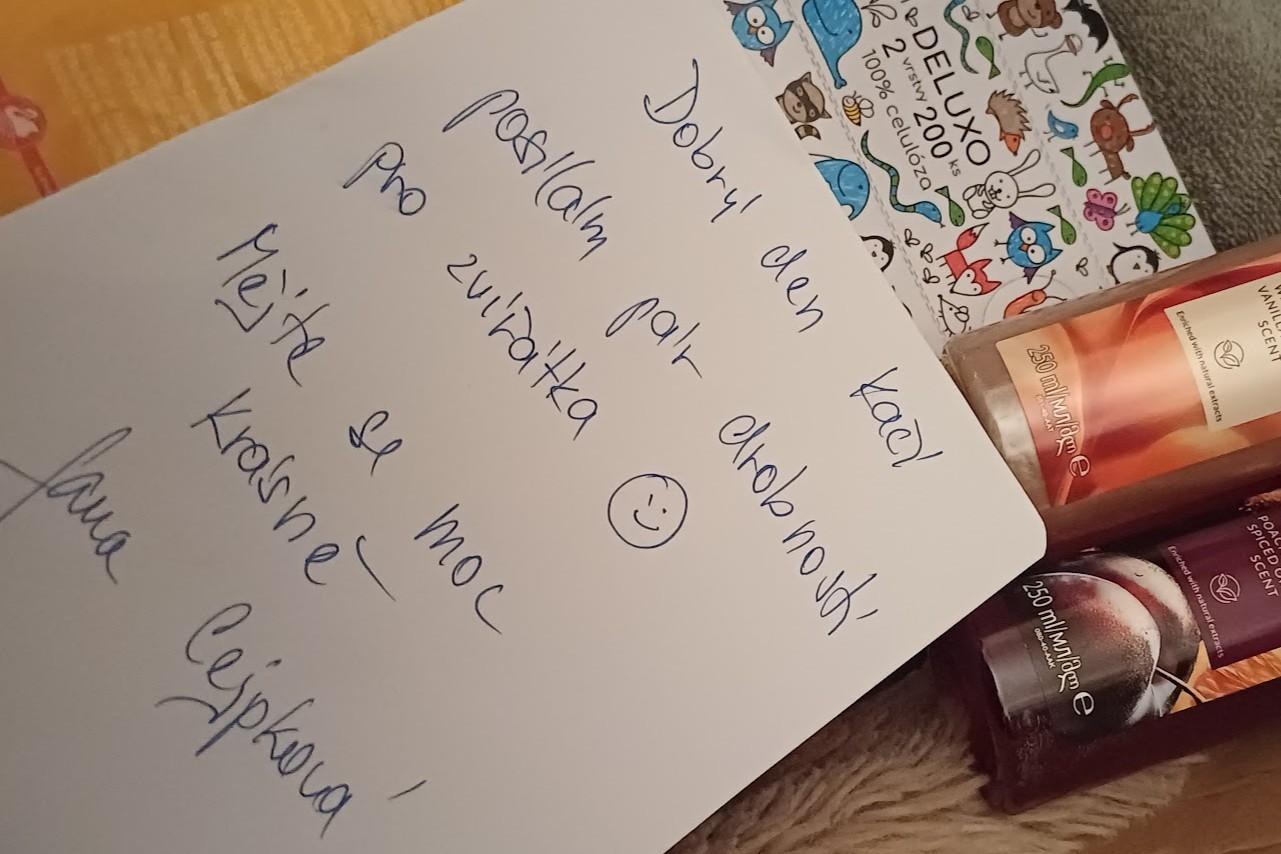 Dobrý den Kačí
posílám pár drobností
pro zvířátka
Mějte se moc
krásně
Jana Cejpková
DELUXO
2 vrstvy 200 ks
100% celulóza
SCENT
Enriched with natural extracts
250 ml/мл/მლ e
SPICED
SCENT
Enriched with natural extracts
250 ml/мл/მლ e